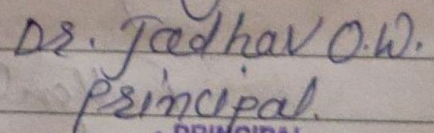 Dr. Jadhav O.W.
Principal.
PRINCIPAL